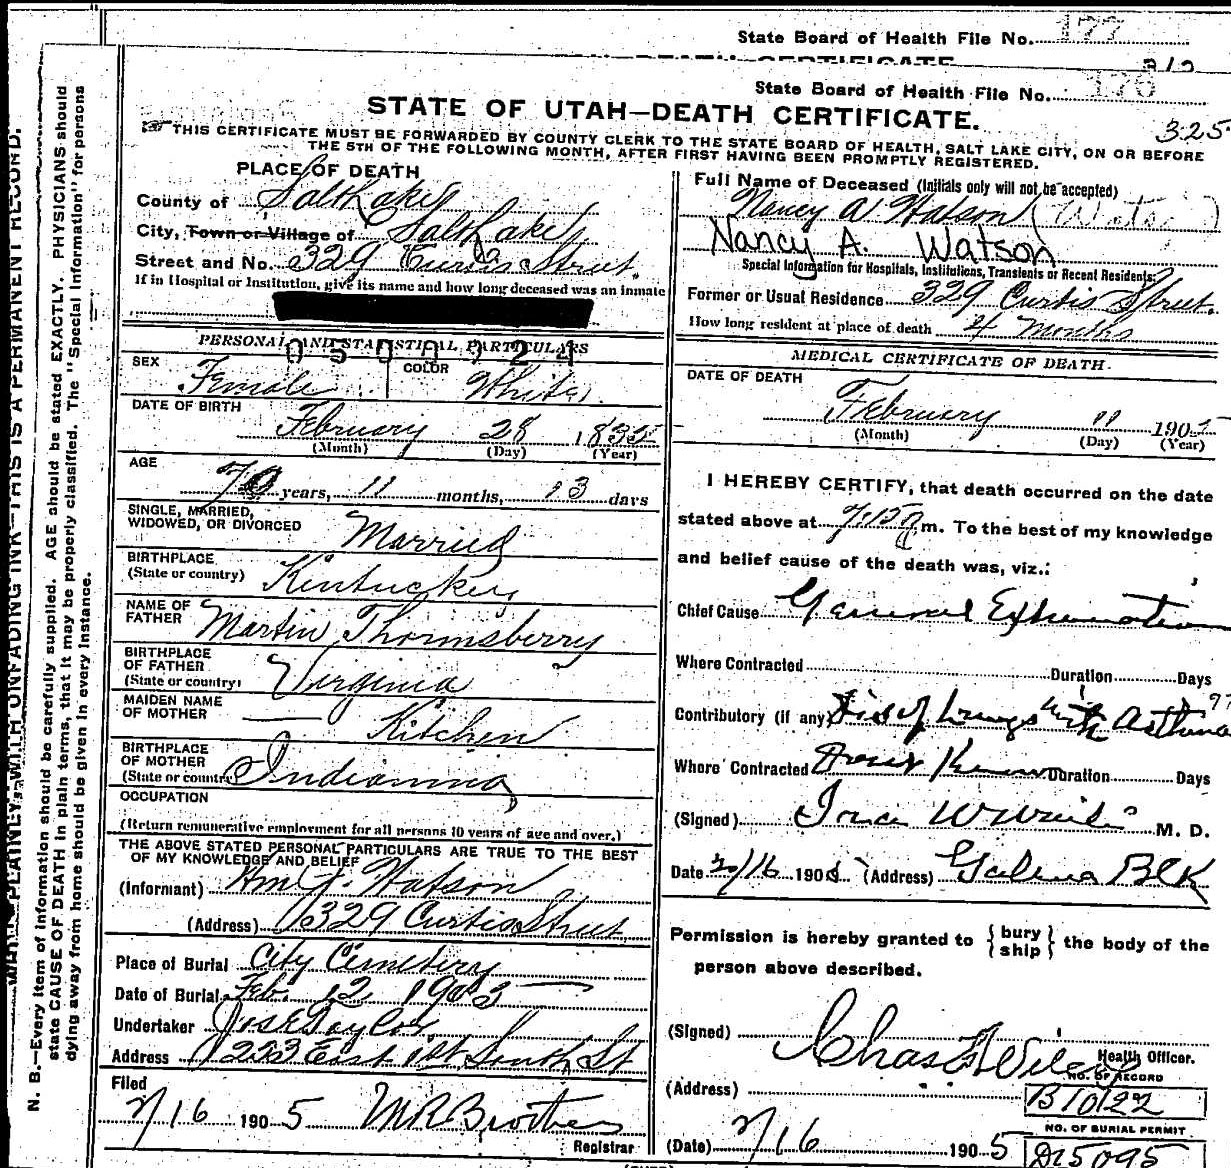 State Board of Health File No. 177
DEATH CERTIFICATE
State Board of Health File No. 176
STATE OF UTAH—DEATH CERTIFICATE.
325
THIS CERTIFICATE MUST BE FORWARDED BY COUNTY CLERK TO THE STATE BOARD OF HEALTH, SALT LAKE CITY, ON OR BEFORE
THE 5TH OF THE FOLLOWING MONTH, AFTER FIRST HAVING BEEN PROMPTLY REGISTERED.
WITH UNFADING INK—THIS IS A PERMANENT RECORD.
N. B.—Every item of information should be carefully supplied. AGE should be stated EXACTLY. PHYSICIANS should
state CAUSE OF DEATH in plain terms, that it may be properly classified. The "Special Information" for persons
dying away from home should be given in every instance.
PLACE OF DEATH
County of Salt Lake
City, Town or Village of Salt Lake
Street and No. 329 Curtis Street.
If in Hospital or Institution, give its name and how long deceased was an inmate
PERSONAL AND STATISTICAL PARTICULARS
SEX Female
COLOR White
DATE OF BIRTH
February 28 1835
(Month) (Day) (Year)
AGE
70 years, 11 months, 13 days
SINGLE, MARRIED,
WIDOWED, OR DIVORCED Married
BIRTHPLACE
(State or country) Kintuckey
NAME OF
FATHER Martin Thornsberry
BIRTHPLACE
OF FATHER
(State or country) Virginia
MAIDEN NAME
OF MOTHER — Kitchen
BIRTHPLACE
OF MOTHER
(State or country) Indianna
OCCUPATION
(Return remunerative employment for all persons 10 years of age and over.)
THE ABOVE STATED PERSONAL PARTICULARS ARE TRUE TO THE BEST
OF MY KNOWLEDGE AND BELIEF
(Informant) Watson
(Address) 329 Curtis Street
Place of Burial City Cemetery
Date of Burial Feb. 12 1905
Undertaker Jos E Taylor
Address 223 East 1st South St
Filed
2/16 1905 M R Brothers
Registrar
Full Name of Deceased (Initials only will not be accepted)
Nancy A Watson
Nancy A. Watson
Special Information for Hospitals, Institutions, Transients or Recent Residents:
Former or Usual Residence 329 Curtis Street.
How long resident at place of death 4 Months
MEDICAL CERTIFICATE OF DEATH.
DATE OF DEATH
February 11 1905
(Month) (Day) (Year)
I HEREBY CERTIFY, that death occurred on the date
stated above at m. To the best of my knowledge
and belief cause of the death was, viz.:
Chief Cause General Exhaustion
Where Contracted Duration Days
Contributory (if any) Dis of Lungs with Asthma
Where Contracted Dont Know Duration Days
(Signed) M. D.
Date 2/16 1905 (Address) Galena Blk
Permission is hereby granted to { bury ship } the body of the
person above described.
(Signed) Chas
Health Officer.
(Address)
NO. OF RECORD
B10122
NO. OF BURIAL PERMIT
D15095
(Date) 2/16 1905